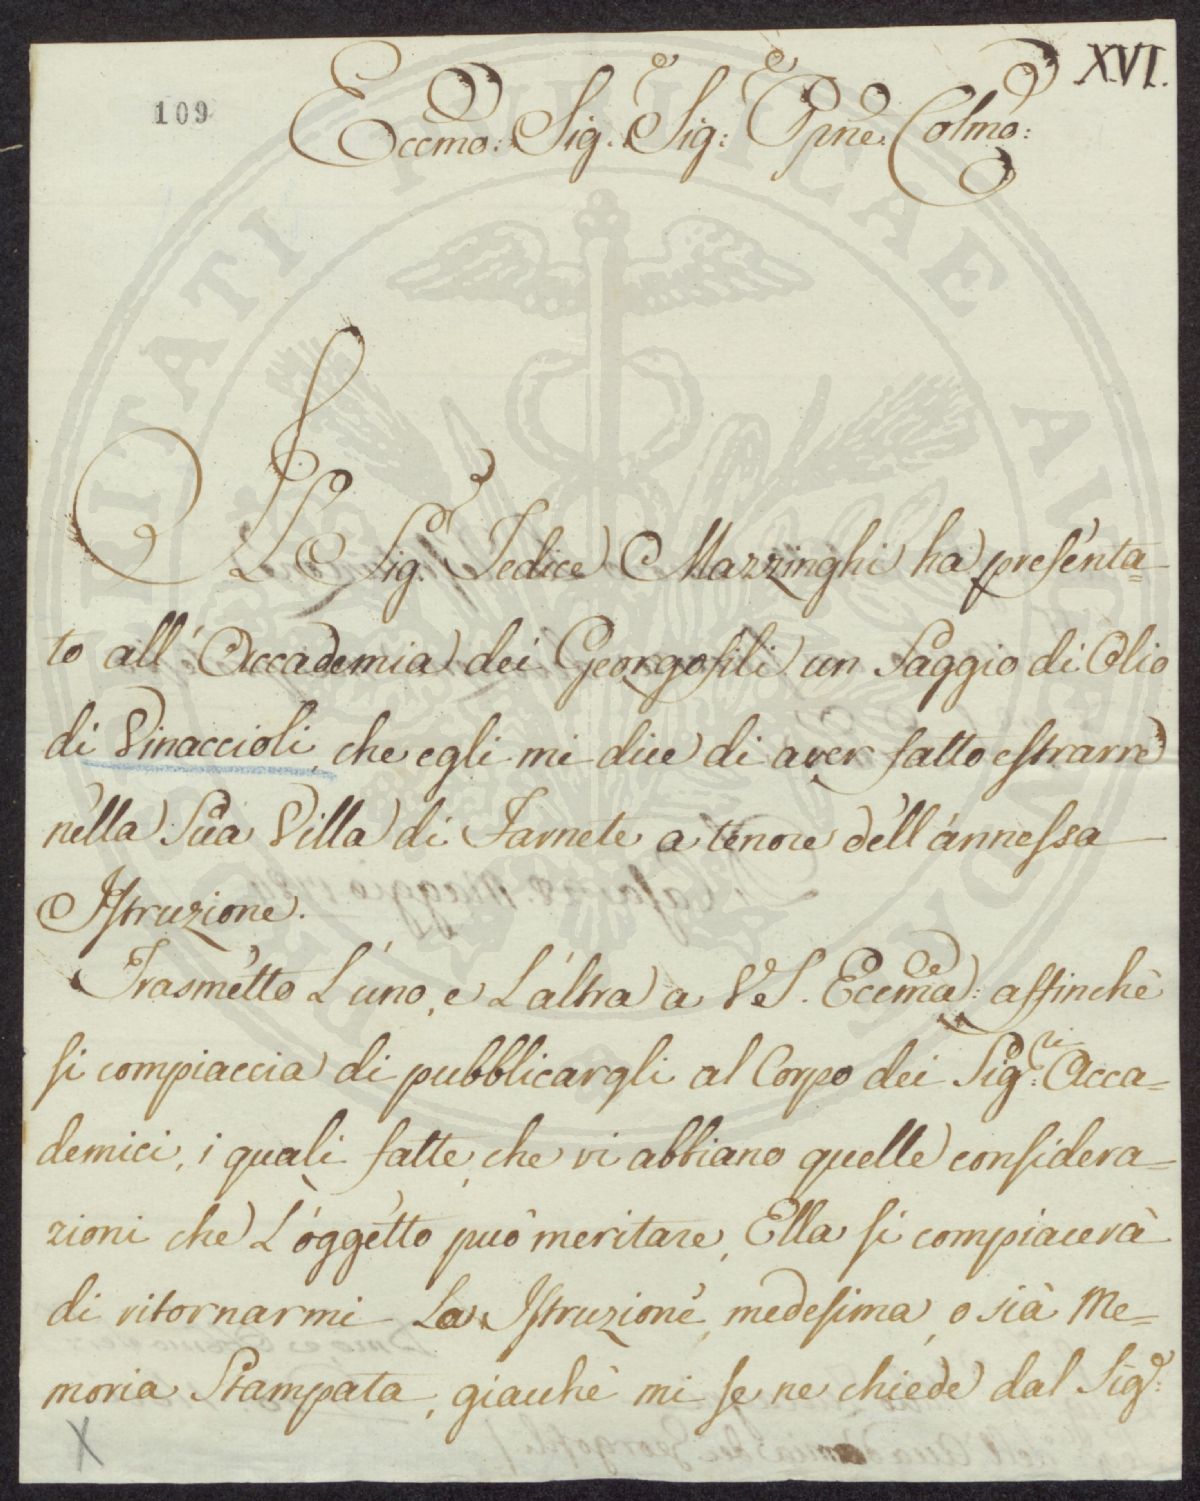 XVI.
109
Eccmo: Sig.re Sig:re Pne: Colmo:
Il Sig.re Fedice Mazzinghi ha presenta=
to all'Accademia dei Georgofili un Saggio di Olio
di Vinaccioli, che egli mi dice di aver fatto estrarre
nella Sua Villa di Farnete a tenore dell'annessa
Istruzione.
Trasmetto L'uno, e L'altra a V.S. Eccma: affinchè
si compiaccia di pubblicargli al Corpo dei Sig:ri Acca=
demici, i quali fatte, che vi abbiano quelle considera=
zioni che L'oggetto può meritare, Ella si compiacerà
di ritornarmi La Istruzione, medesima, o sià Me=
moria Stampata, giacchè mi se ne chiede dal Sig:e
X